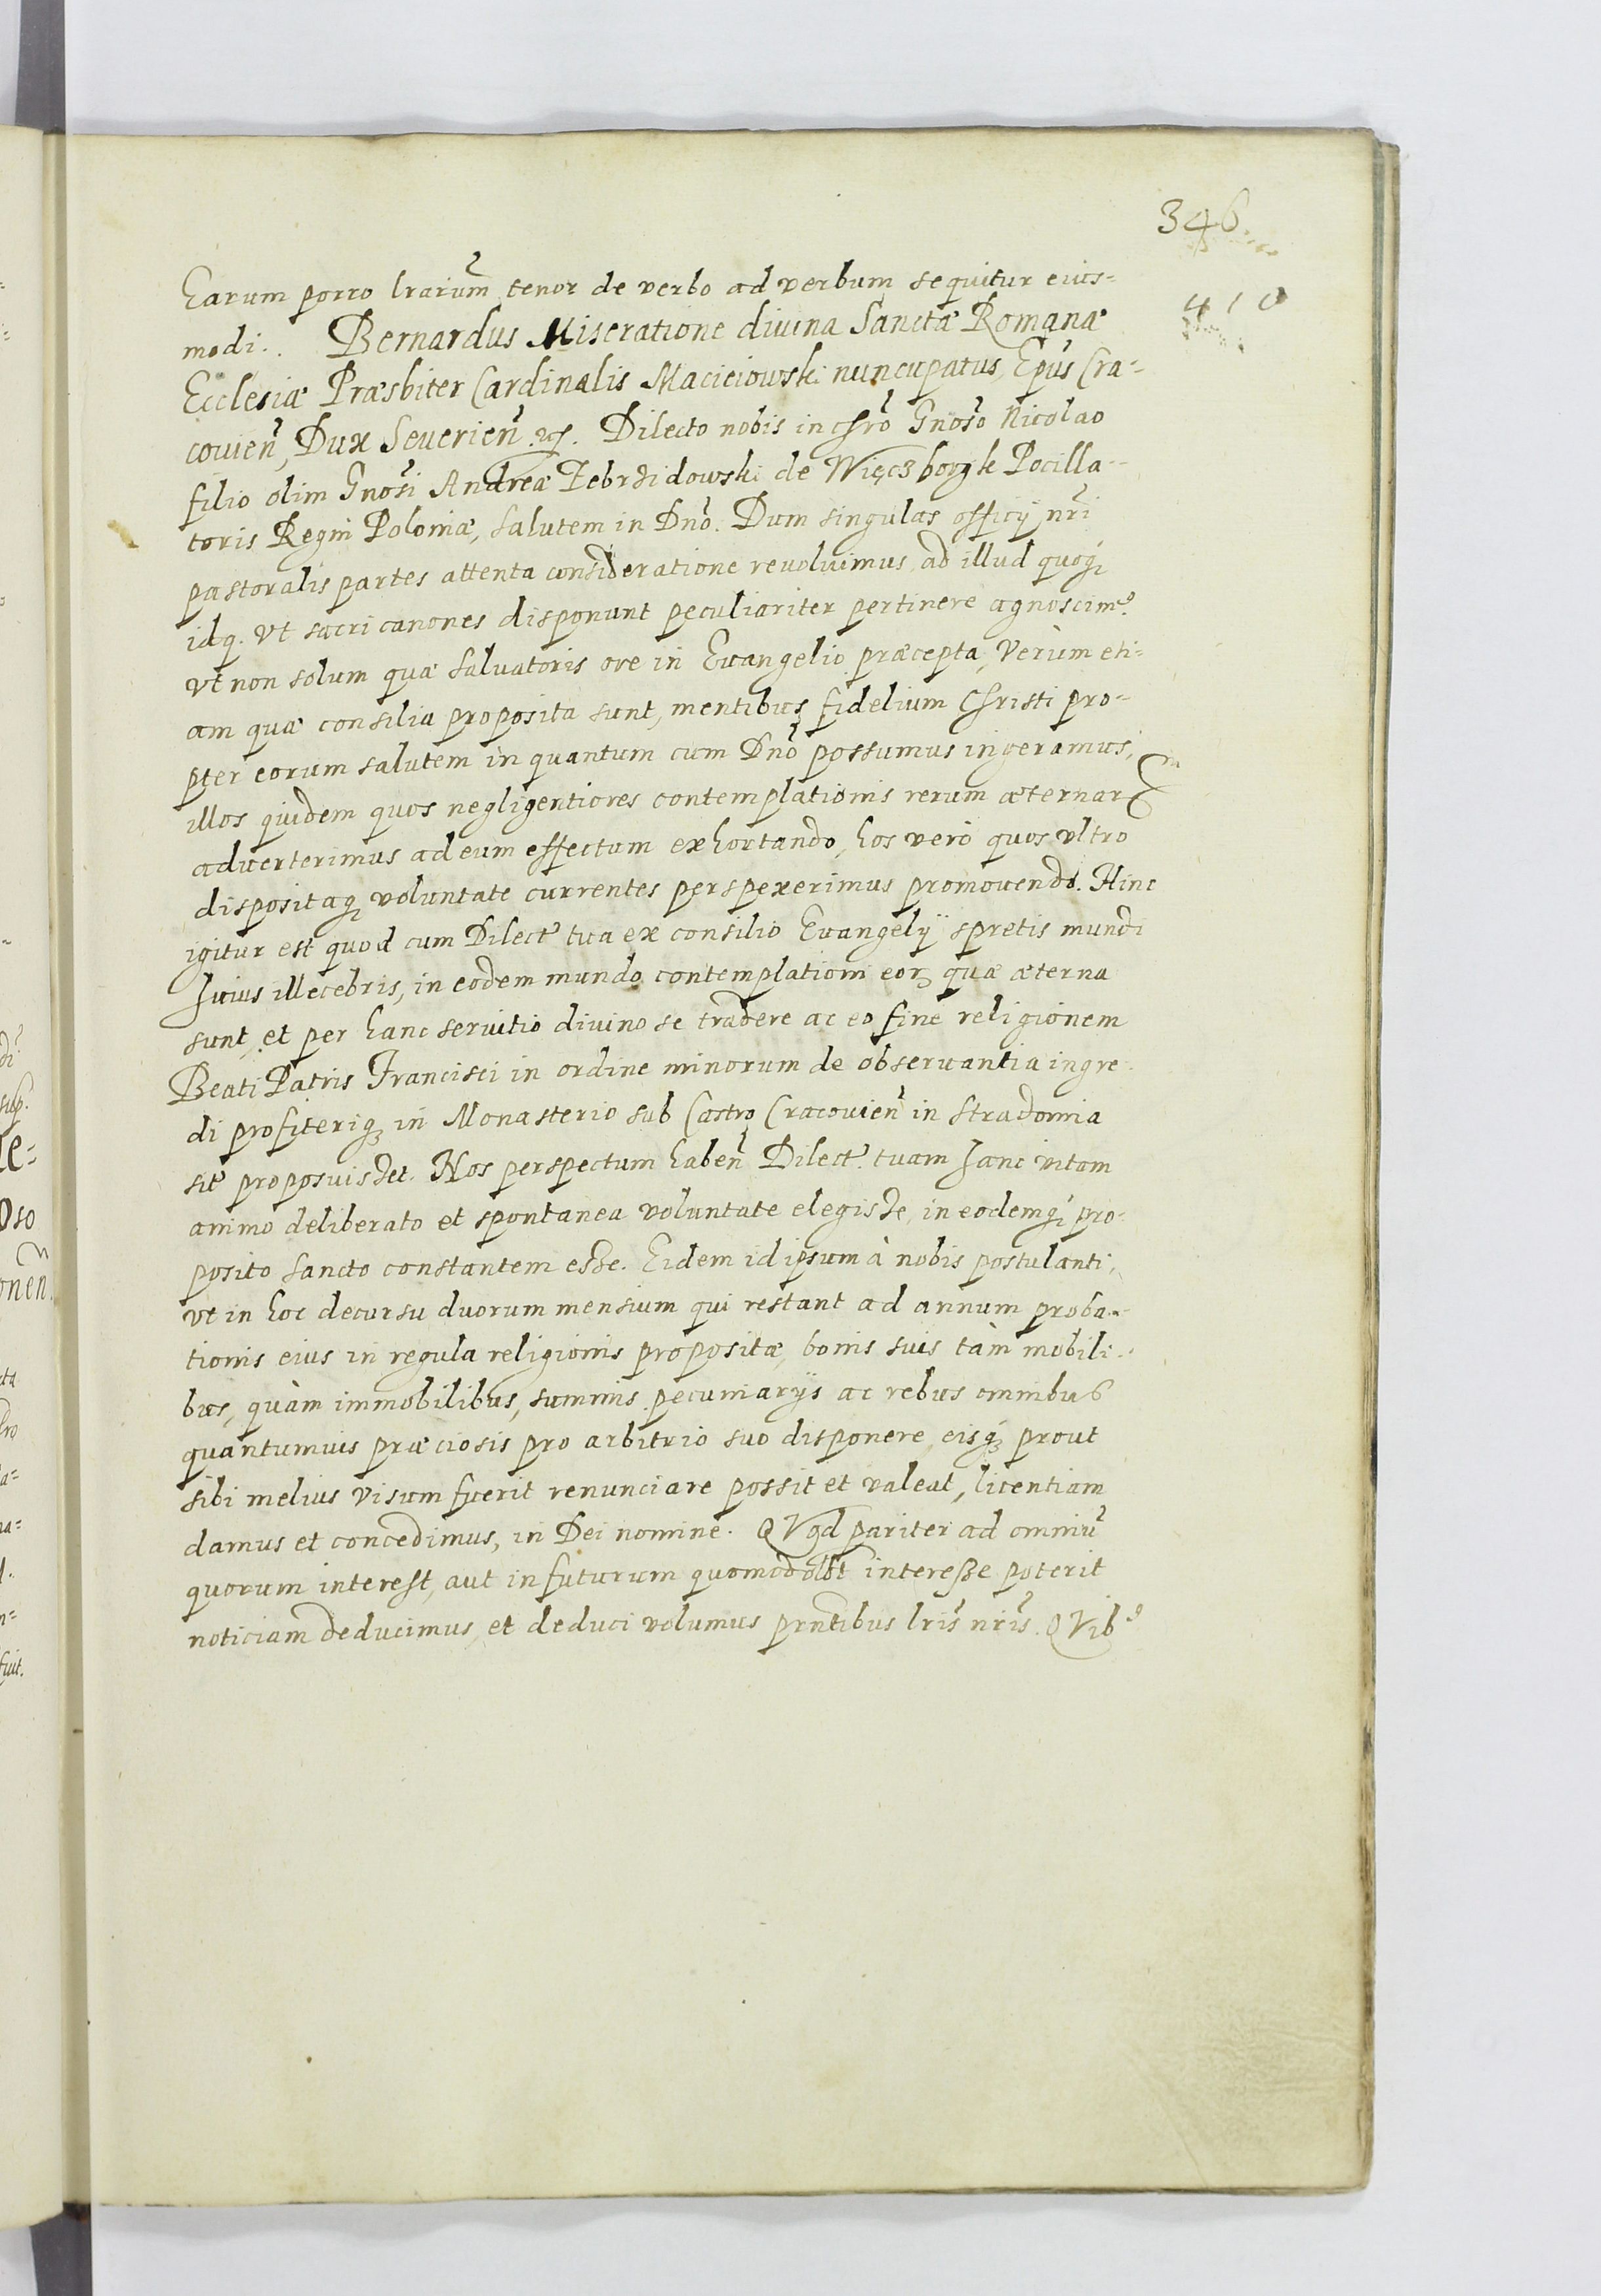 346.
410
Earum porro lrarum̃ tenor de verbo ad verbum sequitur eius-
modi. Bernardus Miseratione diuina Sanctæ Romanæ
Ecclesiæ Præsbiter Cardinalis Macieiowski nuncupatus, Epūs Cra-
couien̄, Dux Seuerien̄ . Dilecto nobis in Chrō Gnōso Nicolao
filio olim Gnōsi Andreæ Zebrzidowski de Więczborgk Pocilla-
toris Regni Poloniæ, salutem in Dnō. Dum singulas officÿ nr̄i
pastoralis partes attenta consideratione reuoluimus, ad illud quoq;
idq. vt sacri canones disponunt peculiariter pertinere agnoscim9.
vt non solum quæ Saluatoris ore in Euangelio præcepta, Verùm eti-
am quæ consilia proposita sunt, mentibus fidelium Christi pro-
pter eorum salutem in quantum cum Dnō possumus ingeramus,
illos quidem quos negligentiores contemplationis rerum æternarum̃
aduerterimus ad eum effectum exhortando, hos verò quos vltro
dispositaq; voluntate currentes perspexerimus promouendo. Hinc
igitur est quod cum Dilect9 tua ex consilio Euangelÿ spretis mundi
huius illecebris, in eodem mundo contemplationi eorꝫ quæ æterna
sunt, et per hanc seruitio diuino se tradere ac eo fine religionem
Beati Patris Francisci in ordine minorum de obseruantia ingre-
di profiteriqꝫ in Monasterio sub Castro Cracouien̄ in Stradomia
sit9 proposuisset. Nos perspectum haben̄ Dilect9. tuam hanc vitam
animo deliberato et spontanea voluntate elegisse, in eodemq; pro-
posito sancto constantem esse. Eidem id ipsum à nobis postulanti,
vt in hoc decursu duorum mensium qui restant ad annum proba-
tionis eius in regula religionis propositæ, bonis suis tàm mobili-
bus, quàm immobilibus, summis pecuniarÿs ac rebus omnibus
quantumuis præciosis pro arbitrio suo disponere, eisqꝫ prout
sibi melius visum fuerit renunciare possit et valeat, licentiam
damus et concedimus, in Dei nomine. QVod pariter ad omniū
quorum interest, aut in futurum quomodolbt interesse poterit
noticiam deducimus, et deduci volumus prntibus lris̄ nris̄. QVib9